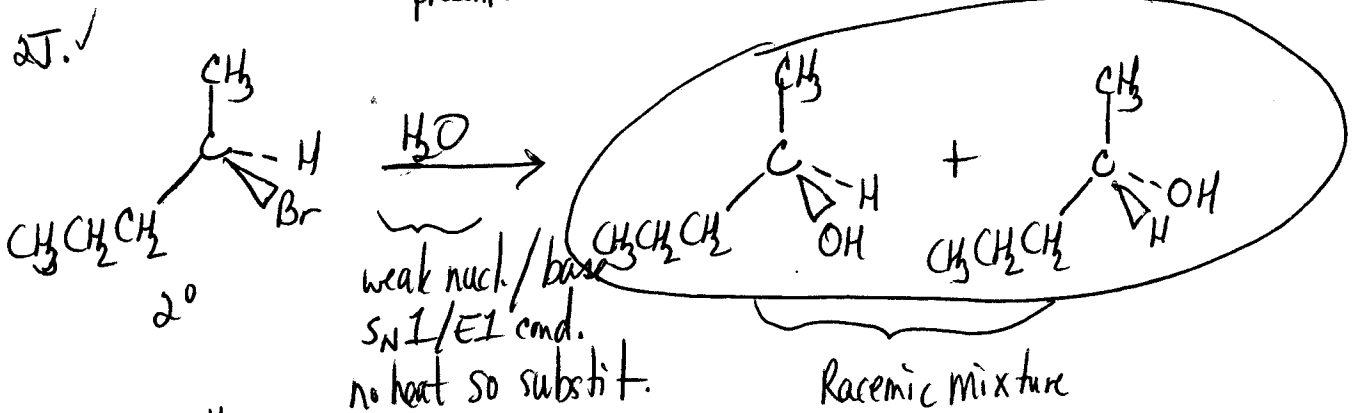 2J. ✓
CH3
C
H
Br
CH3CH2CH2
2°
H2O
weak nucl./base
SN1/E1 cond.
no heat so substit.
CH3
C
H
OH
CH3CH2CH2
+
CH3
C
OH
H
CH3CH2CH2
Racemic mixture